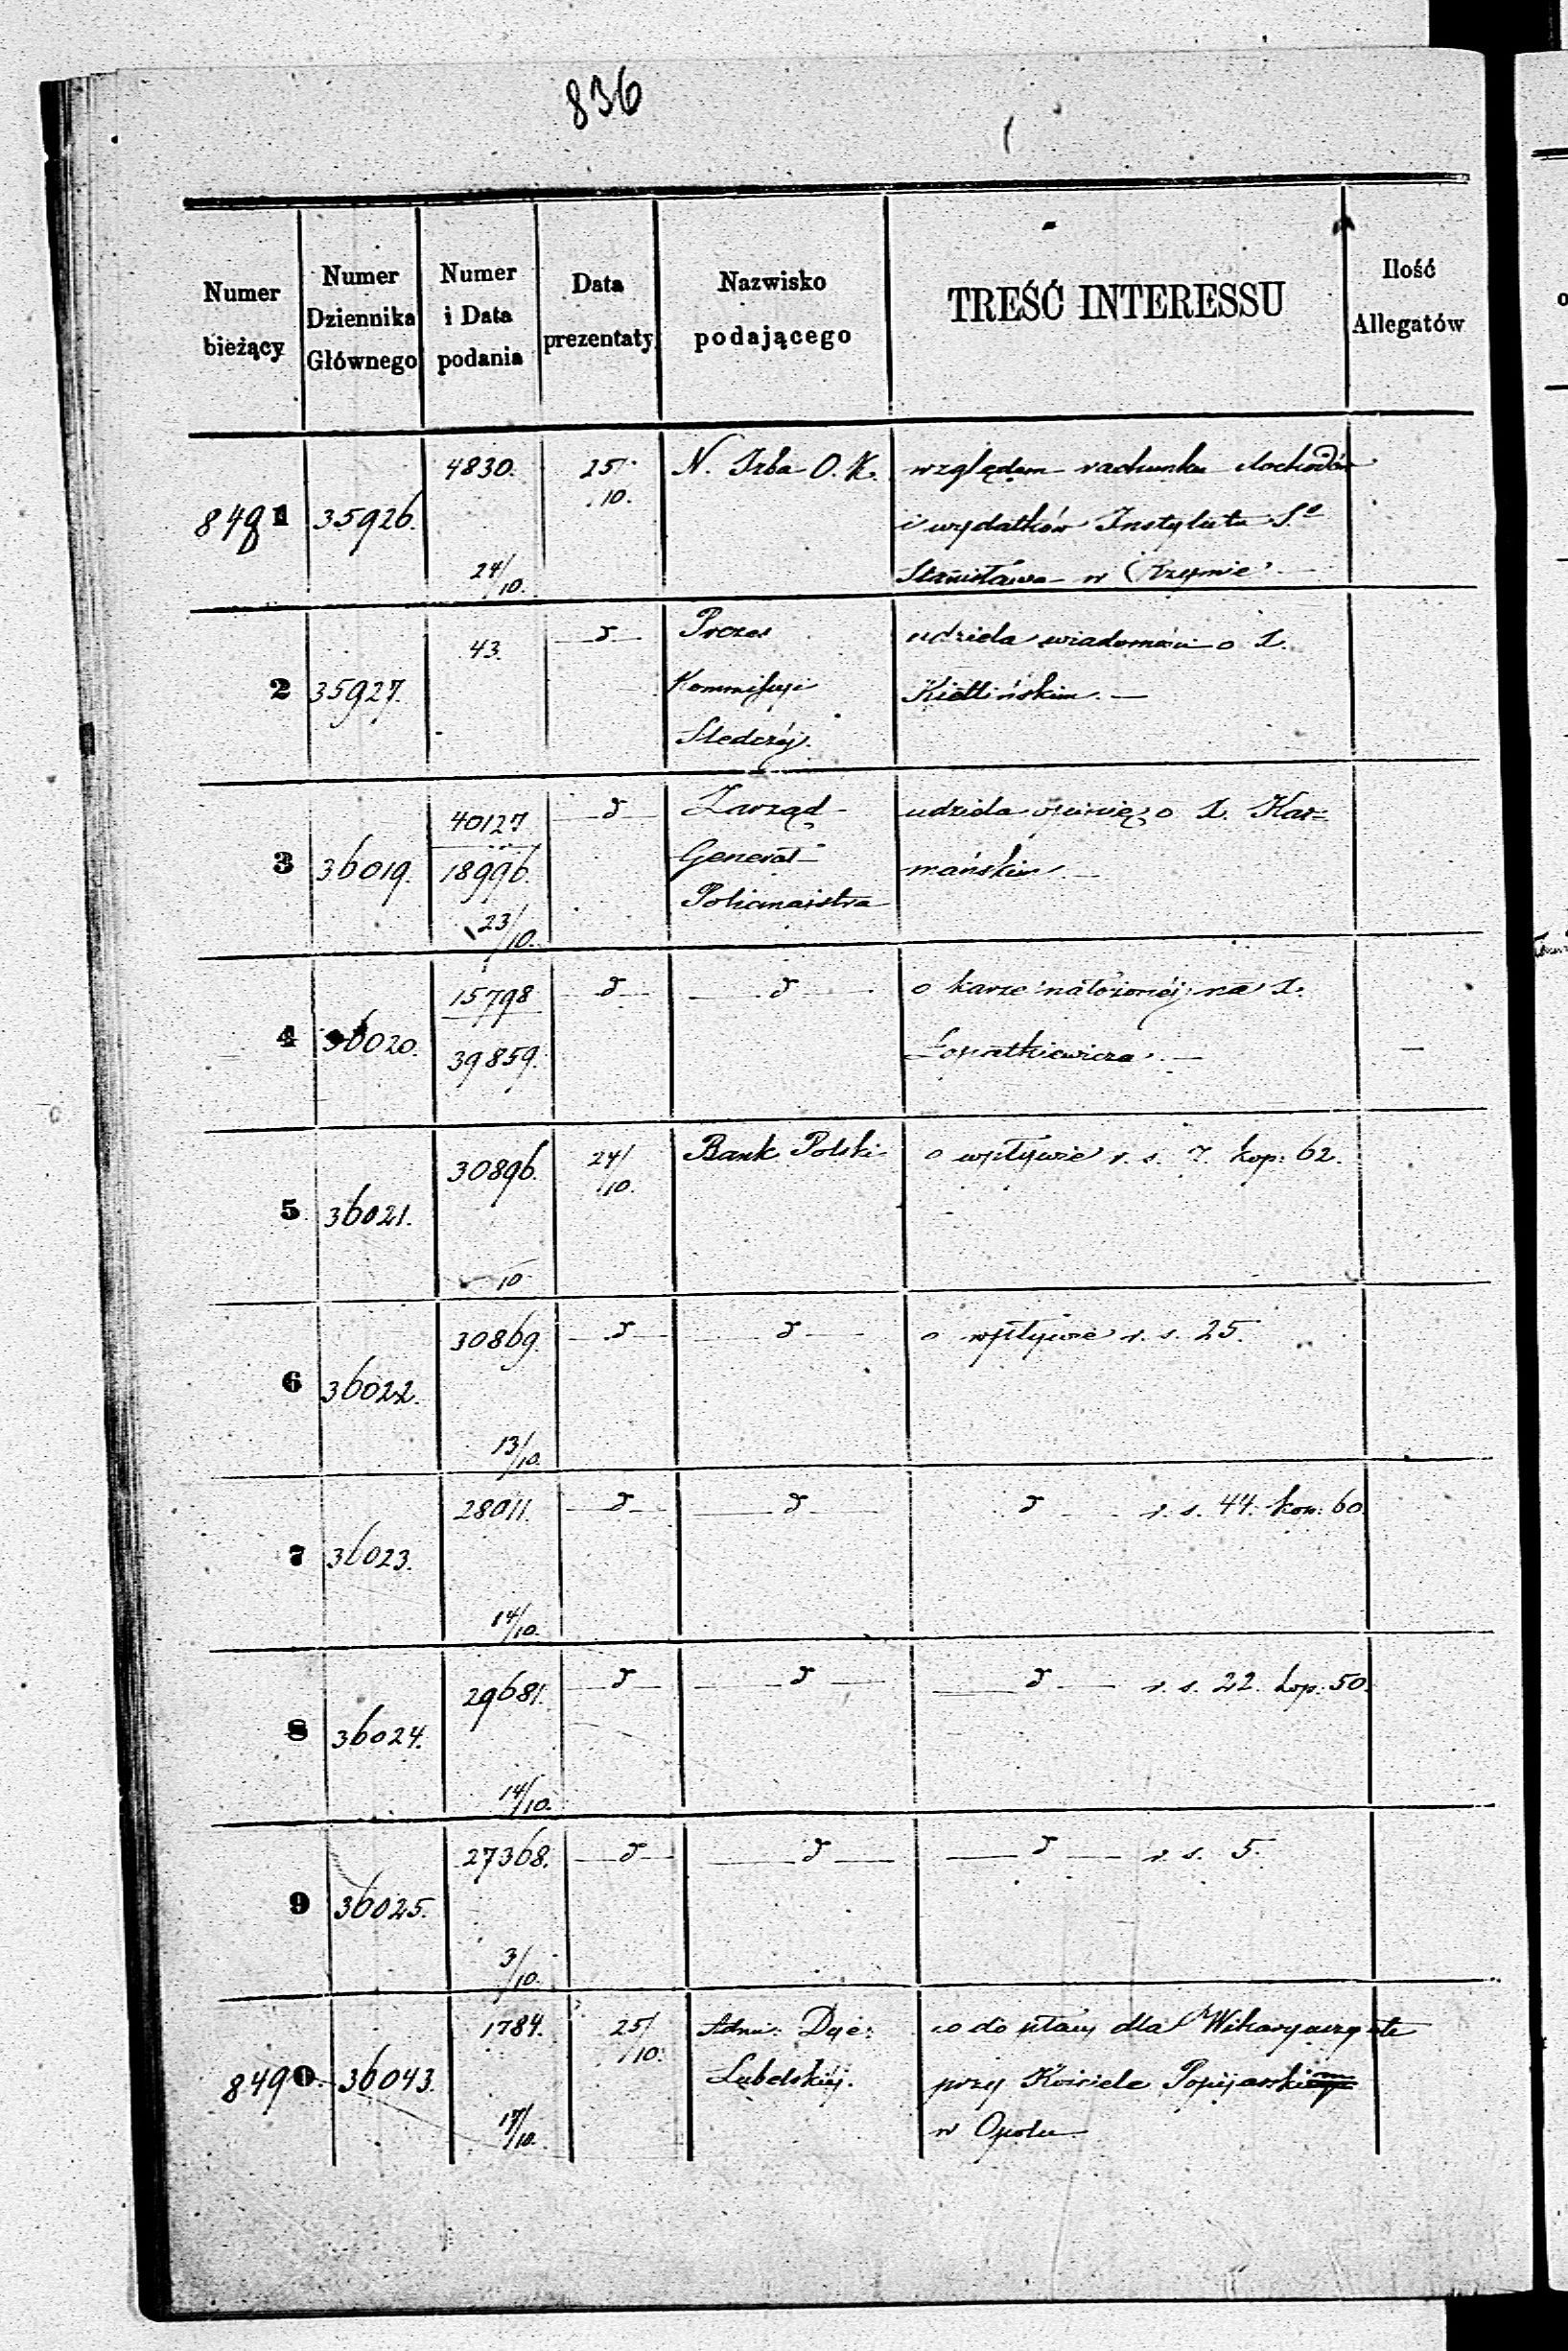 836
Numer bieżący | Numer Dziennika Głównego | Numer i Data podania | Data prezentaty | Nazwisko podającego | TREŚĆ INTERESSU | Ilość Allegatów
8481 | 35926. | 4830. 24/10. | 25/10. | N. Izba O. K. | względem rachunku dochodów
i wydatków Instytutu Sº
Stanisława w Rzymie. —
2 | 35927. | 43. | — d — | Prezes | udziela wiadomości o X.
Kommissyi | Kietlińskim. —
Sledczéj.
3 | 36019. | 40127 / 18996. 23/10. | — d — | Zarząd | udziela opinię o X. Kar=
Generał | mańskim. —
Policmajstra
4 | 36020. | 15798 / 39859. | — d — | — d — | o karze nałożonéj na X.
Łopatkiewicza. — | —
5 | 36021. | 30896. 10 | 24/10. | Bank Polski | o wpływie r. s. 7. kop: 62.
6 | 36022. | 30869. 13/10. | — d — | — d — | o wpływie r. s. 25.
7 | 36023. | 28011. 14/10. | — d — | — d — | d — r. s. 44. kop: 60.
8 | 36024. | 29681. 14/10. | — d — | — d — | — d — r. s. 22. kop. 50.
9 | 36025. | 27368. 3/10. | — d — | — d — | — d — r. s. 5.
8490. | 36043. | 1784. 17/10. | 25/10. | Adm: Dye: | co do płacy dla Wikaryusza
Lubelskiéj. | przy Kościele Popijarskim
w Opolu